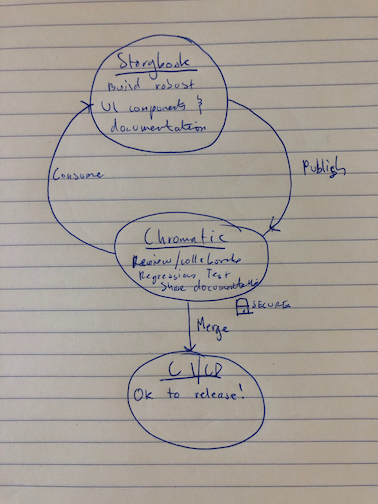 Storybook
Build robust
UI components &
documentation
Consume
Publish
Chromatic
Review/collaborate
Regression Test
Share documentation
SECURE
Merge
CI/CD
Ok to release!